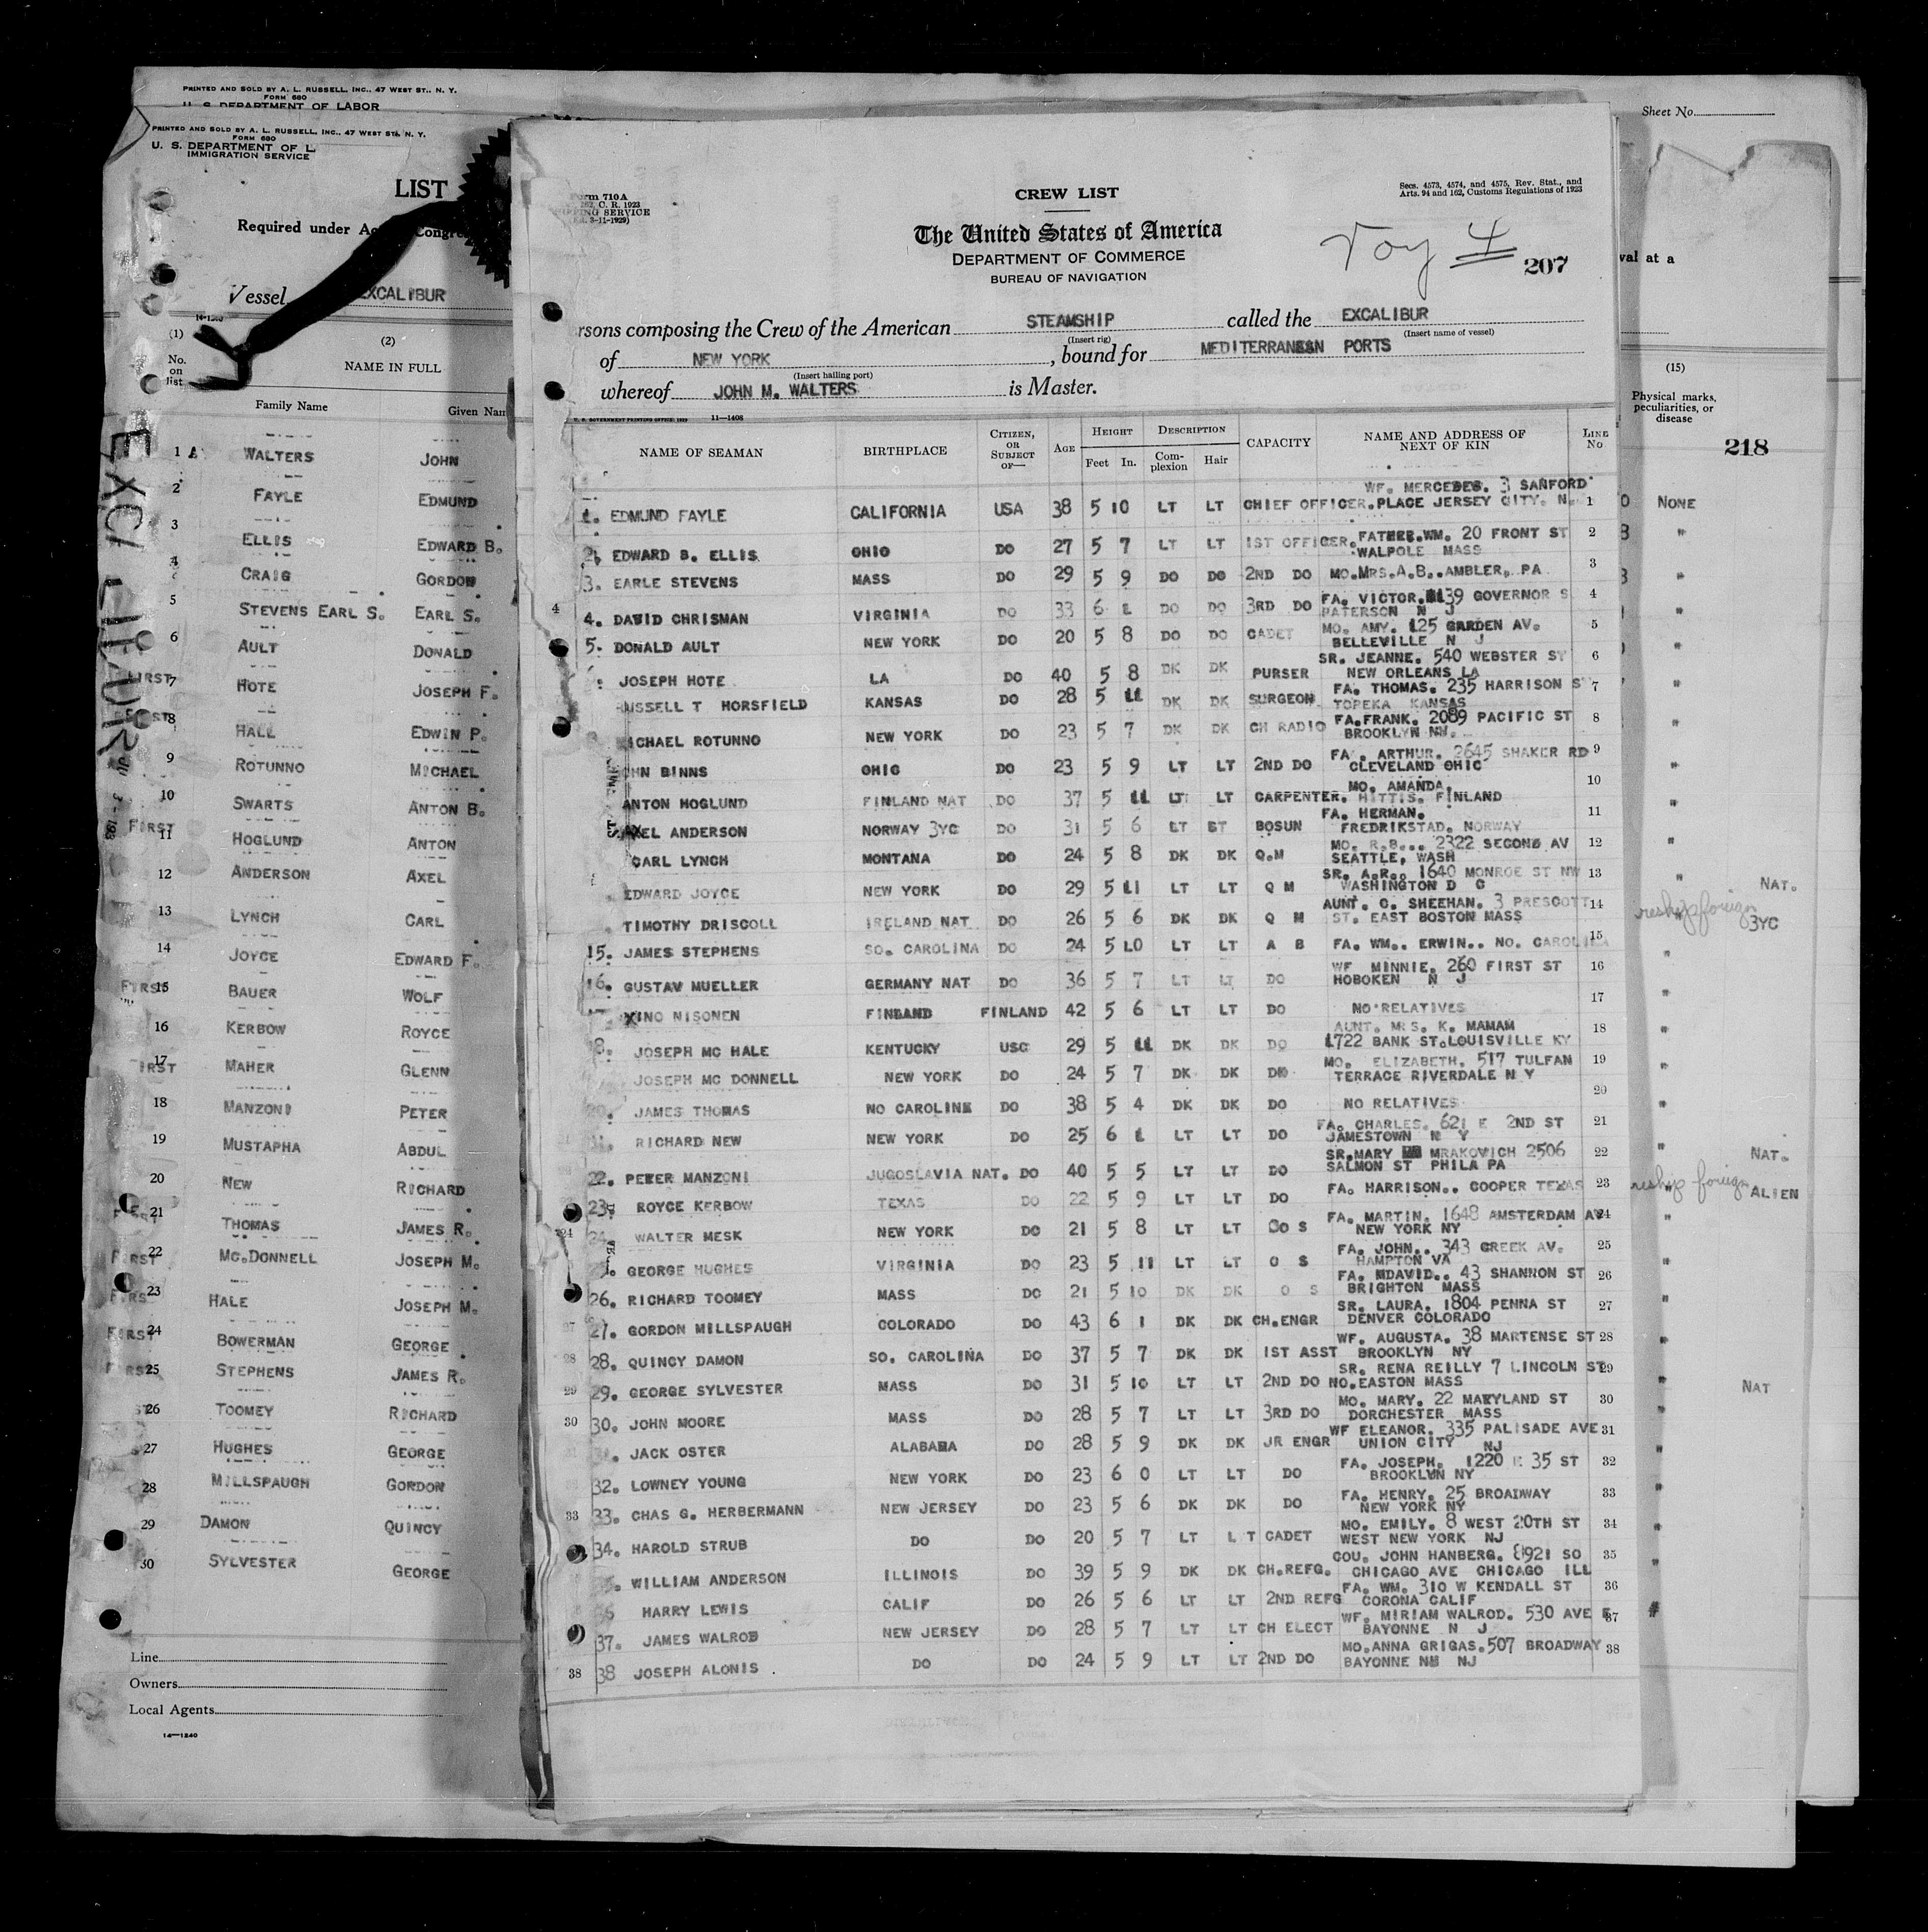 PRINTED AND SOLD BY A. L. RUSSELL, INC., 47 WEST ST., N. Y.
FORM 680
U. S. DEPARTMENT OF LABOR
PRINTED AND SOLD BY A. L. RUSSELL, INC., 47 WEST ST., N. Y.
FORM 680
U. S. DEPARTMENT OF L
IMMIGRATION SERVICE
LIST
Required under Ac Congre
Vessel EXCALIBUR
(1) (2)
No. on list NAME IN FULL
Family Name Given Nam
EXCALIBUR
1 WALTERS JOHN
2 FAYLE EDMUND
3 ELLIS EDWARD B.
4 CRAIG GORDON
5 STEVENS EARL S. EARL S.
6 AULT DONALD
FIRST 7 HOTE JOSEPH F.
8 HALL EDWIN P.
9 ROTUNNO MICHAEL
10 SWARTS ANTON B.
FIRST 11 HOGLUND ANTON
12 ANDERSON AXEL
13 LYNCH CARL
14 JOYCE EDWARD F.
FIRST 15 BAUER WOLF
16 KERBOW ROYCE
17 IRST MAHER GLENN
18 MANZONI PETER
19 MUSTAPHA ABDUL
20 NEW RICHARD
21 THOMAS JAMES R.
FIRST 22 MC.DONNELL JOSEPH M.
23 HALE JOSEPH M.
FIRST 24 BOWERMAN GEORGE
FIRST 25 STEPHENS JAMES R.
ST 26 TOOMEY RICHARD
27 HUGHES GEORGE
28 MILLSPAUGH GORDON
29 DAMON QUINCY
30 SYLVESTER GEORGE
Line
Owners
Local Agents
14—1240
Form 710A
C. R. 1923
SHIPPING SERVICE
3-11-1929)
CREW LIST
Secs. 4573, 4574, and 4575, Rev. Stat., and
Arts. 94 and 162, Customs Regulations of 1923
The United States of America
DEPARTMENT OF COMMERCE
BUREAU OF NAVIGATION
Voy 4
207
rsons composing the Crew of the American STEAMSHIP called the EXCALIBUR
(Insert rig) (Insert name of vessel)
of NEW YORK, bound for MEDITERRANEAN PORTS
(Insert hailing port)
whereof JOHN M. WALTERS is Master.
U. S. GOVERNMENT PRINTING OFFICE: 1929 11—1408
NAME OF SEAMAN BIRTHPLACE CITIZEN, OR SUBJECT OF— AGE HEIGHT Feet In. DESCRIPTION Complexion Hair CAPACITY NAME AND ADDRESS OF NEXT OF KIN LINE NO
WF. MERCEDES. 3 SANFORD
1. EDMUND FAYLE CALIFORNIA USA 38 5 10 LT LT CHIEF OFFICER. PLACE JERSEY CITY. N. 1
2. EDWARD B. ELLIS OHIO DO 27 5 7 LT LT 1ST OFFICER. FATHER.WM. 20 FRONT ST 2
WALPOLE MASS
3. EARLE STEVENS MASS DO 29 5 9 DO DO 2ND DO MO.MRS.A.B..AMBLER, PA 3
4 4. DAVID CHRISMAN VIRGINIA DO 33 6 1 DO DO 3RD DO FA. VICTOR. 139 GOVERNOR S 4
PATERSON N J
5. DONALD AULT NEW YORK DO 20 5 8 DO DO CADET MO. AMY. 125 GARDEN AV. 5
BELLEVILLE N J
SR. JEANNE. 540 WEBSTER ST 6
JOSEPH HOTE LA DO 40 5 8 DK DK PURSER NEW ORLEANS LA
RUSSELL T HORSFIELD KANSAS DO 28 5 11 DK DK SURGEON FA. THOMAS. 235 HARRISON S 7
TOPEKA KANSAS
MICHAEL ROTUNNO NEW YORK DO 23 5 7 DK DK CH RADIO FA.FRANK. 2089 PACIFIC ST 8
BROOKLYN NH.
JOHN BINNS OHIO DO 23 5 9 LT LT 2ND DO FA. ARTHUR. 2645 SHAKER RD 9
CLEVELAND OHIO
MO. AMANDA. 10
ANTON HOGLUND FINLAND NAT DO 37 5 11 LT LT CARPENTER. HITTIS. FINLAND
FA. HERMAN. 11
AXEL ANDERSON NORWAY 3YC DO 31 5 6 LT BT BOSUN FREDRIKSTAD. NORWAY
CARL LYNCH MONTANA DO 24 5 8 DK DK Q.M MO. R.B... 2322 SECOND AV 12
SEATTLE, WASH
EDWARD JOYCE NEW YORK DO 29 5 11 LT LT Q M SR. A.R.. 1640 MONROE ST NW 13
WASHINGTON D C
AUNT. C. SHEEHAN. 3 PRESCOTT 14
TIMOTHY DRISCOLL IRELAND NAT DO 26 5 6 DK DK Q M ST. EAST BOSTON MASS
15. JAMES STEPHENS SO. CAROLINA DO 24 5 10 LT LT A B FA. WM.. ERWIN.. NO. CAROLINA 15
16. GUSTAV MUELLER GERMANY NAT DO 36 5 7 LT LT DO WF MINNIE. 260 FIRST ST 16
HOBOKEN N J
XINO NISONEN FINLAND FINLAND 42 5 6 LT LT DO NO RELATIVES 17
AUNT. MRS. K. MAMAM 18
18. JOSEPH MC HALE KENTUCKY USC 29 5 11 DK DK DO 1722 BANK ST.LOUISVILLE KY
JOSEPH MC DONNELL NEW YORK DO 24 5 7 DK DK DO MO. ELIZABETH. 517 TULFAN 19
TERRACE RIVERDALE N Y
20. JAMES THOMAS NO CAROLINE DO 38 5 4 DK DK DO NO RELATIVES 20
RICHARD NEW NEW YORK DO 25 6 1 LT LT DO FA. CHARLES. 621 E 2ND ST 21
JAMESTOWN N Y
SR.MARY MRAKOVICH 2506 22
22. PETER MANZONI JUGOSLAVIA NAT. DO 40 5 5 LT LT DO SALMON ST PHILA PA
23. ROYCE KERBOW TEXAS DO 22 5 9 LT LT DO FA. HARRISON.. COOPER TEXAS 23
24. WALTER MESK NEW YORK DO 21 5 8 LT LT O S FA. MARTIN. 1648 AMSTERDAM AV 24
NEW YORK NY
GEORGE HUGHES VIRGINIA DO 23 5 11 LT LT O S FA. JOHN.. 343 GREEK AV. 25
HAMPTON VA
26. RICHARD TOOMEY MASS DO 21 5 10 DK DK O S FA. MDAVID.. 43 SHANNON ST 26
BRIGHTON MASS
SR. LAURA. 1804 PENNA ST 27
27. GORDON MILLSPAUGH COLORADO DO 43 6 1 DK DK CH.ENGR DENVER COLORADO
WF. AUGUSTA. 38 MARTENSE ST 28
28 28. QUINCY DAMON SO. CAROLINA DO 37 5 7 DK DK 1ST ASST BROOKLYN NY
SR. RENA REILLY 7 LINCOLN ST 29
29 29. GEORGE SYLVESTER MASS DO 31 5 10 LT LT 2ND DO NO.EASTON MASS
MO. MARY. 22 MARYLAND ST 30
30 30. JOHN MOORE MASS DO 28 5 7 LT LT 3RD DO DORCHESTER MASS
WF ELEANOR. 335 PALISADE AVE 31
JACK OSTER ALABAMA DO 28 5 9 DK DK JR ENGR UNION CITY NJ
FA. JOSEPH. 1220 E 35 ST 32
32. LOWNEY YOUNG NEW YORK DO 23 6 0 LT LT DO BROOKLYN NY
FA. HENRY. 25 BROADWAY 33
33 33. CHAS G. HERBERMANN NEW JERSEY DO 23 5 6 DK DK DO NEW YORK NY
MO. EMILY. 8 WEST 20TH ST 34
34. HAROLD STRUB DO DO 20 5 7 LT L T CADET WEST NEW YORK NJ
COU. JOHN HANBERG. 8921 SO 35
WILLIAM ANDERSON ILLINOIS DO 39 5 9 DK DK CH.REFG. CHICAGO AVE CHICAGO ILL
FA. WM. 310 W KENDALL ST 36
36 HARRY LEWIS CALIF DO 26 5 6 LT LT 2ND REFG CORONA CALIF
WF. MIRIAM WALROD. 530 AVE E 37
37. JAMES WALROD NEW JERSEY DO 28 5 7 LT LT CH ELECT BAYONNE N J
MO.ANNA GRIGAS.507 BROADWAY 38
38 38 JOSEPH ALONIS DO DO 24 5 9 LT LT 2ND DO BAYONNE NJ
Sheet No
val at a
(15)
Physical marks,
peculiarities, or
disease
218
NONE
NAT.
reshyp foreign
3YC
NAT.
reshyp foreign
ALIEN
NAT